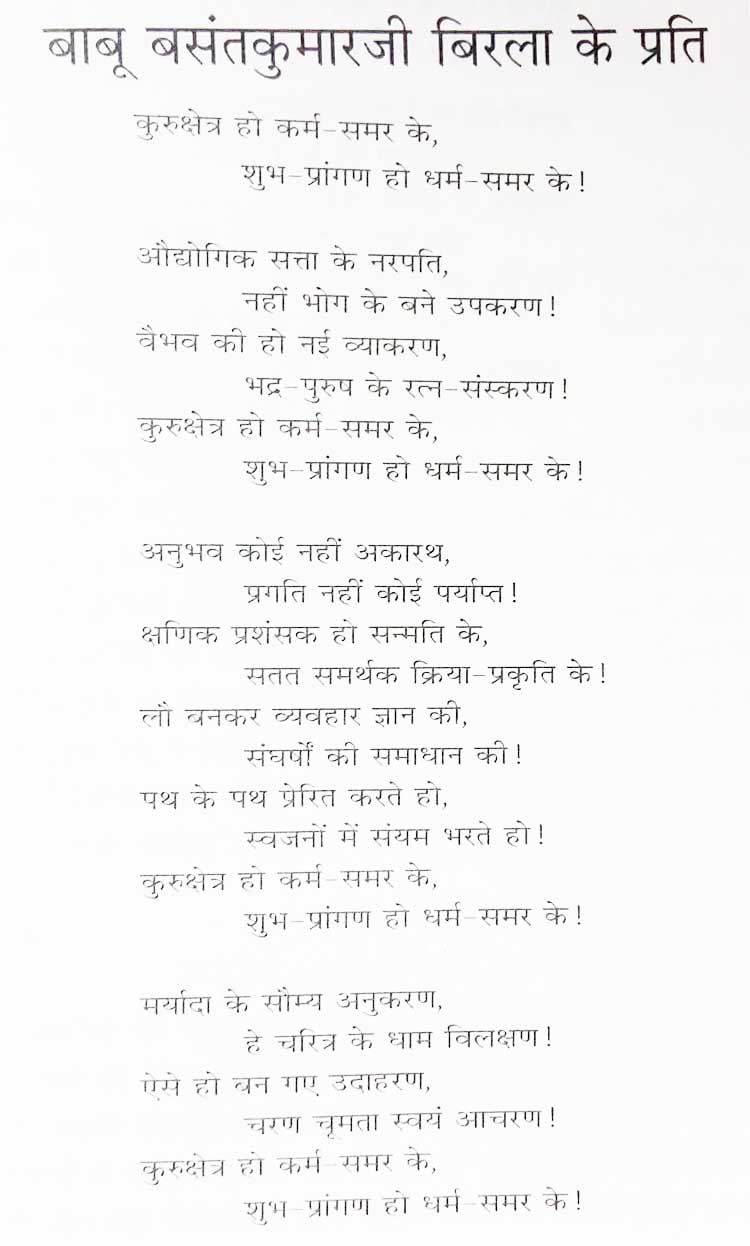 बाबू बसंतकुमारजी बिरला के प्रति
कुरुक्षेत्र हो कर्म-समर के,
शुभ-प्रांगण हो धर्म-समर के!
औद्योगिक सत्ता के नरपति,
नहीं भोग के बने उपकरण!
वैभव की हो नई व्याकरण,
भद्र-पुरुष के रत्न-संस्करण!
कुरुक्षेत्र हो कर्म-समर के,
शुभ-प्रांगण हो धर्म-समर के!
अनुभव कोई नहीं अकारथ,
प्रगति नहीं कोई पर्याप्त!
क्षणिक प्रशंसक हो सन्मति के,
सतत समर्थक क्रिया-प्रकृति के!
लौ बनकर व्यवहार ज्ञान की,
संघर्षों की समाधान की!
पथ के पथ प्रेरित करते हो,
स्वजनों में संयम भरते हो!
कुरुक्षेत्र हो कर्म-समर के,
शुभ-प्रांगण हो धर्म-समर के!
मर्यादा के सौम्य अनुकरण,
हे चरित्र के धाम विलक्षण!
ऐसे हो बन गए उदाहरण,
चरण चूमता स्वयं आचरण!
कुरुक्षेत्र हो कर्म-समर के,
शुभ-प्रांगण हो धर्म-समर के!